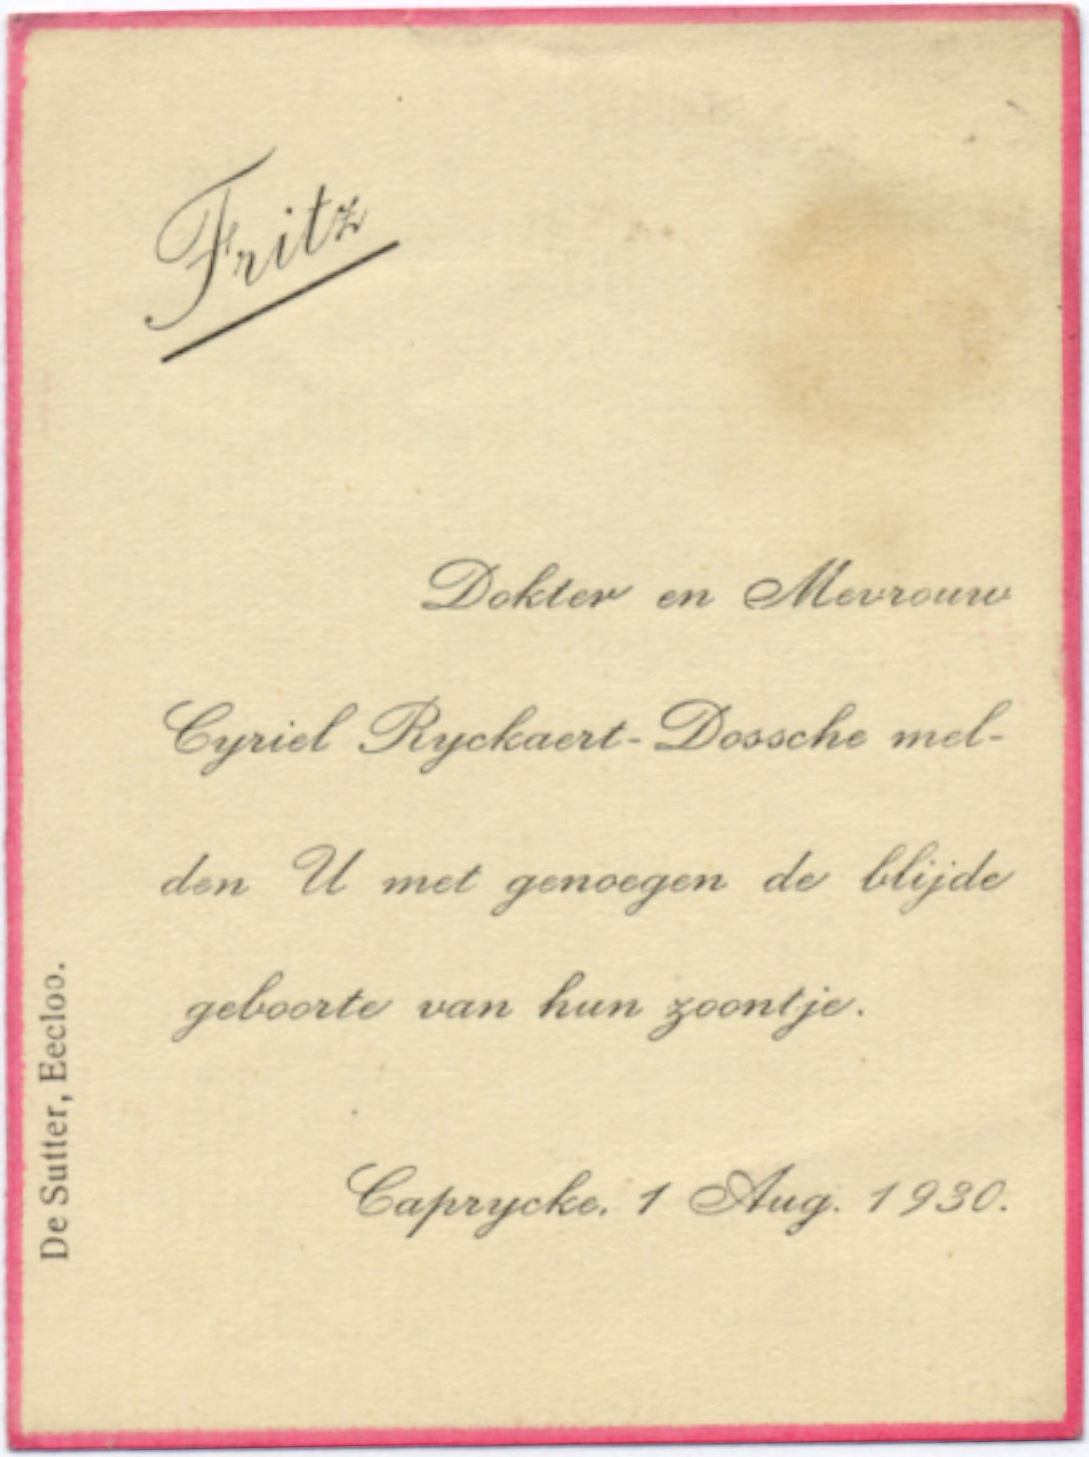 Fritz
Dokter en Mevrouw
Cyriel Ryckaert-Dossche mel-
den U met genoegen de blijde
geboorte van hun zoontje.
Caprycke. 1 Aug. 1930.
De Sutter, Eecloo.